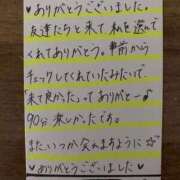 ♥ありがとうございました。
友達たちと来て、私を選んで
くれてありがとう。事前から
チェックしてくれていたみたいで、
「来て良かった」ってありがとー♪
90分楽しかたです。
また、いつか会えますように☆
♥ありがとうございました♥